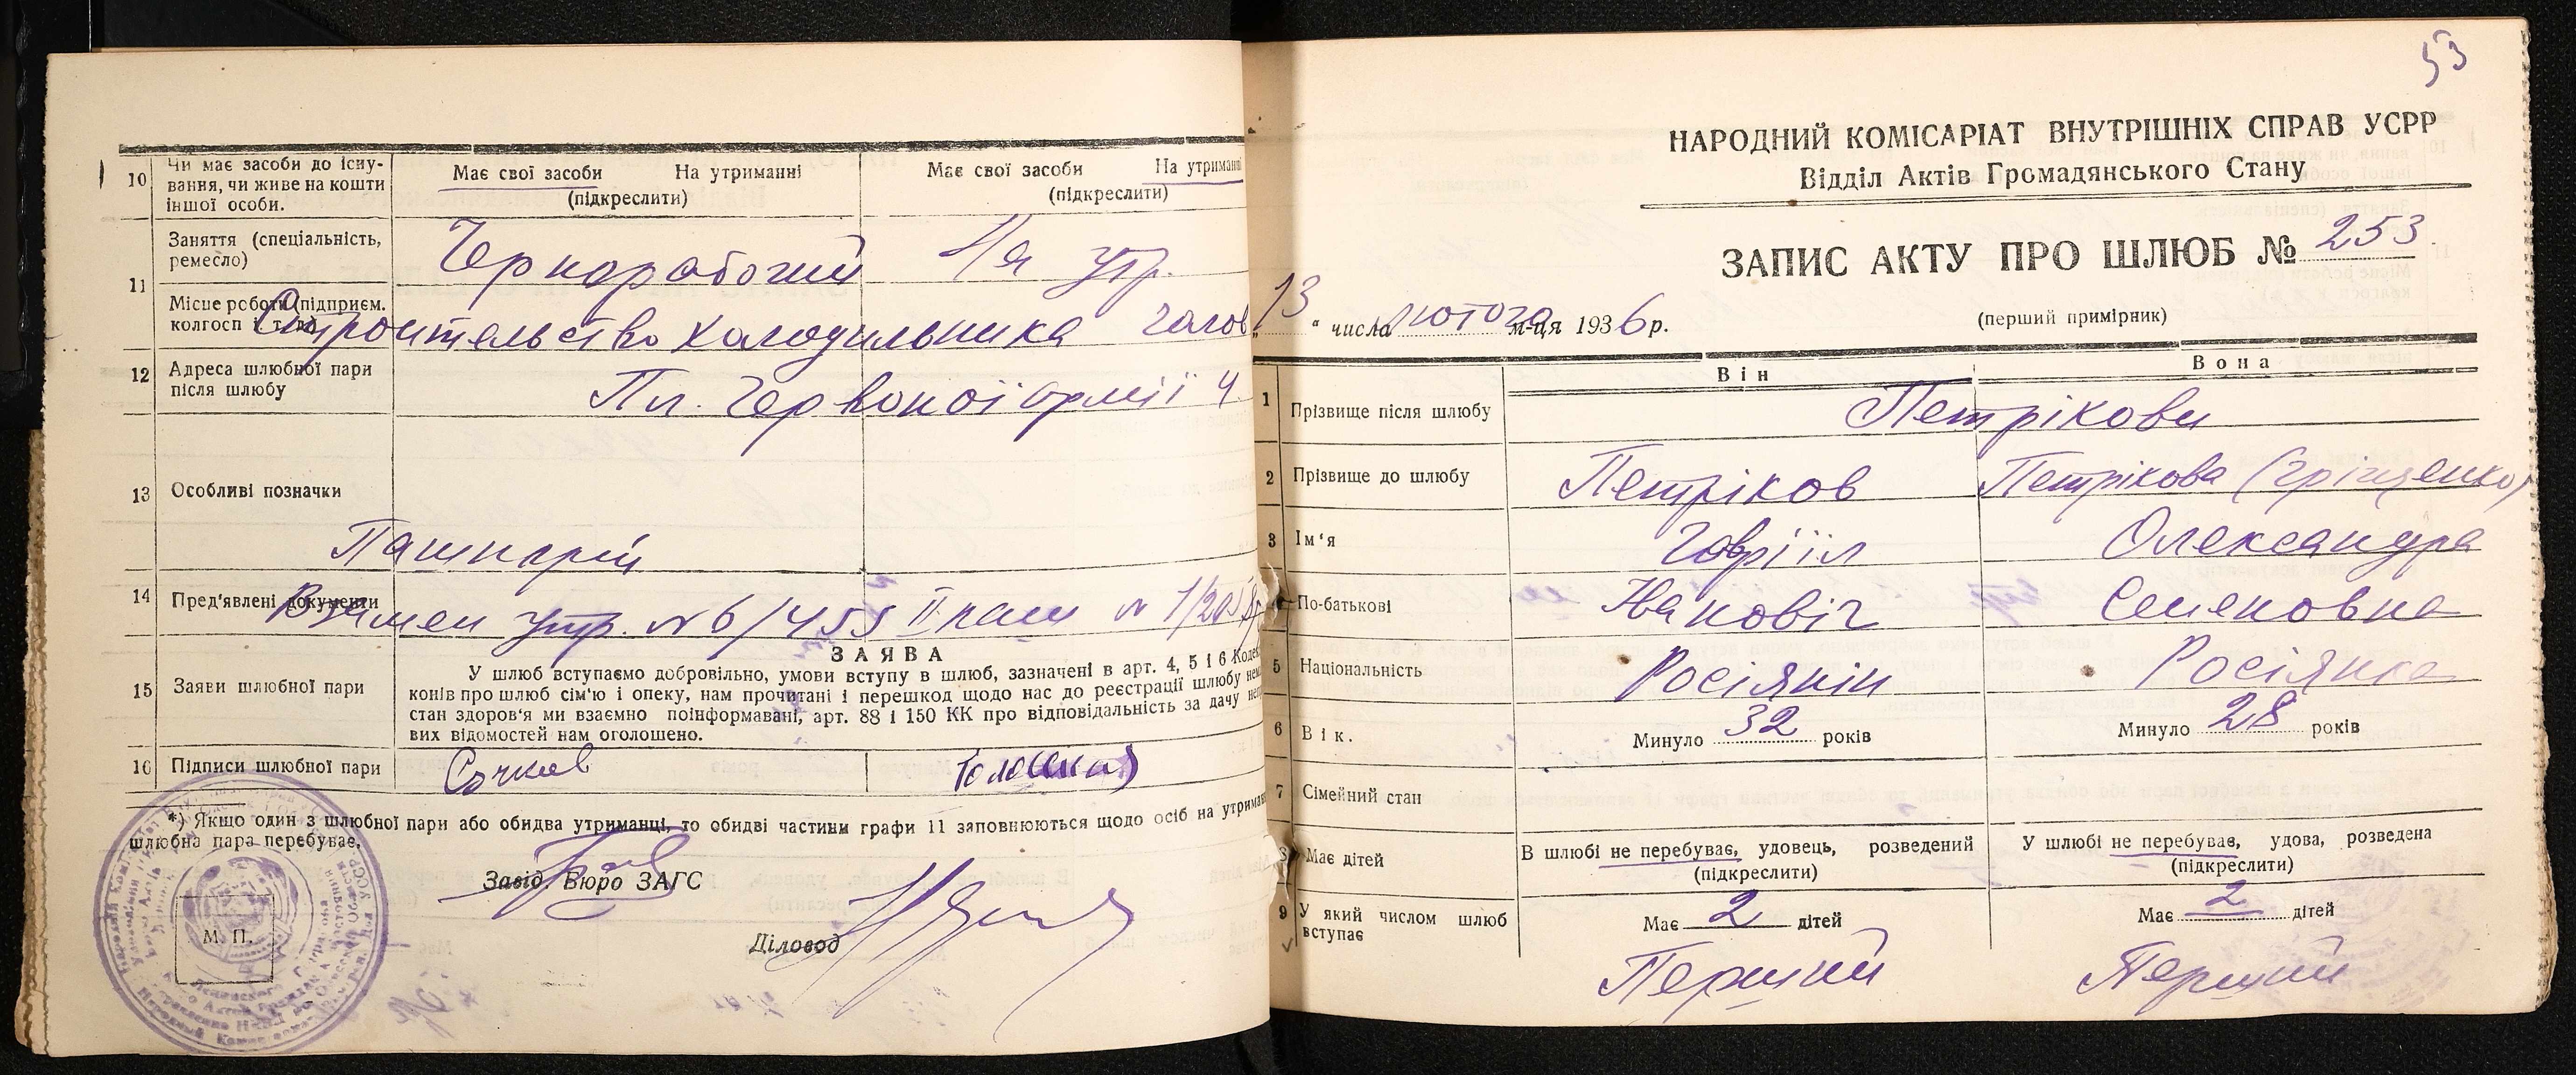 10 Чи має засоби до існування, чи живе на кошти іншої особи.
Має свої засоби На утриманні
(підкреслити)
Має свої засоби На утриманні
(підкреслити)
11 Заняття (спеціальність, ремесло)
Чернорабочий На утр.
Місце роботи (підприєм. колгосп і т. ін.)
Строительство холодильника
12 Адреса шлюбної пари після шлюбу
Пл. Червоної армії 4
13 Особливі позначки
14 Пред'явлені документи
утр. № 6/455 II
15 Заяви шлюбної пари
ЗАЯВА
У шлюб вступаємо добровільно, умови вступу в шлюб, зазначені в арт. 4, 5 і 6
конів про шлюб сім'ю і опеку, нам прочитані і перешкод щодо нас до реєстрації шлюбу
стан здоров'я ми взаємно поінформавані, арт. 88 і 150 КК про відповідальність за дачу
вих відомостей нам оголошено.
16 Підписи шлюбної пари
*) Якщо один з шлюбної пари або обидва утриманці, то обидві частини графи 11 заповнюються щодо осіб на
шлюбна пара перебуває.
Завід. Бюро ЗАГС
Діловод
М. П.
53
НАРОДНИЙ КОМІСАРІАТ ВНУТРІШНІХ СПРАВ УСРР
Відділ Актів Громадянського Стану
ЗАПИС АКТУ ПРО ШЛЮБ № 253
„13“ числа лютого м-ця 1936 р.
(перший примірник)
Він Вона
1 Прізвище після шлюбу Петрікови
2 Прізвище до шлюбу Петріков Петрікова (Гріщенко)
3 Ім'я Гавріїл Олександра
4 По-батькові Івановіч Семеновна
5 Національність Росіянін Росіянка
6 Вік. Минуло 32 років Минуло 28 років
7 Сімейний стан
8 Має дітей
В шлюбі не перебуває, удовець, розведений
(підкреслити)
У шлюбі не перебуває, удова, розведена
(підкреслити)
9 У який числом шлюб вступає
Має 2 дітей Має 2 дітей
Перший Перший